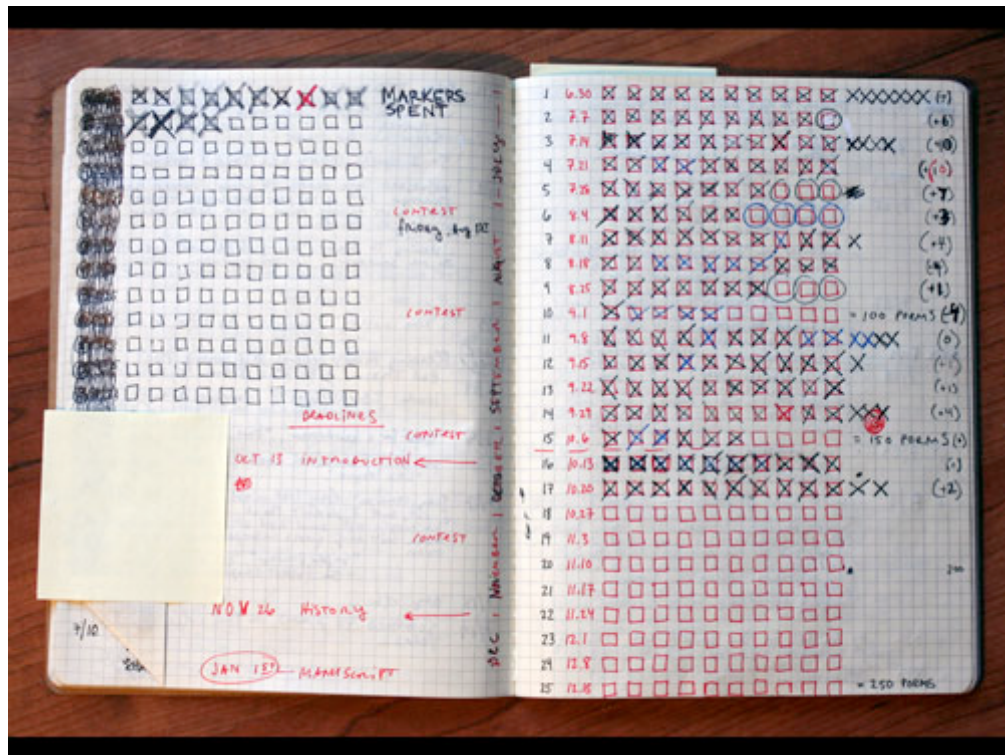 MARKERS
SPENT
CONTEST
friday, Aug
CONTEST
DEADLINES
CONTEST
OCT 13 INTRODUCTION
CONTEST
NOV 26 HISTORY
JAN 1ST MANUSCRIPT
7/10
DEC | NOVEMBER | OCTOBER | SEPTEMBER | AUGUST | JULY
1 6.30 (+7)
2 7.7 (+6)
3 7.14
4 7.21
5 7.28 (+7)
6 8.4 (+3)
7 8.11 (+4)
8 8.18
9 8.25 (+1)
10 9.1 = 100 POEMS (-4)
11 9.8 (0)
12 9.15 (+1)
13 9.22
14 9.29 (+4)
15 10.6 = 150 POEMS
16 10.13
17 10.20 (+2)
18 10.27
19 11.3
20 11.10 200
21 11.17
22 11.24
23 12.1
24 12.8
25 12.15 = 250 POEMS